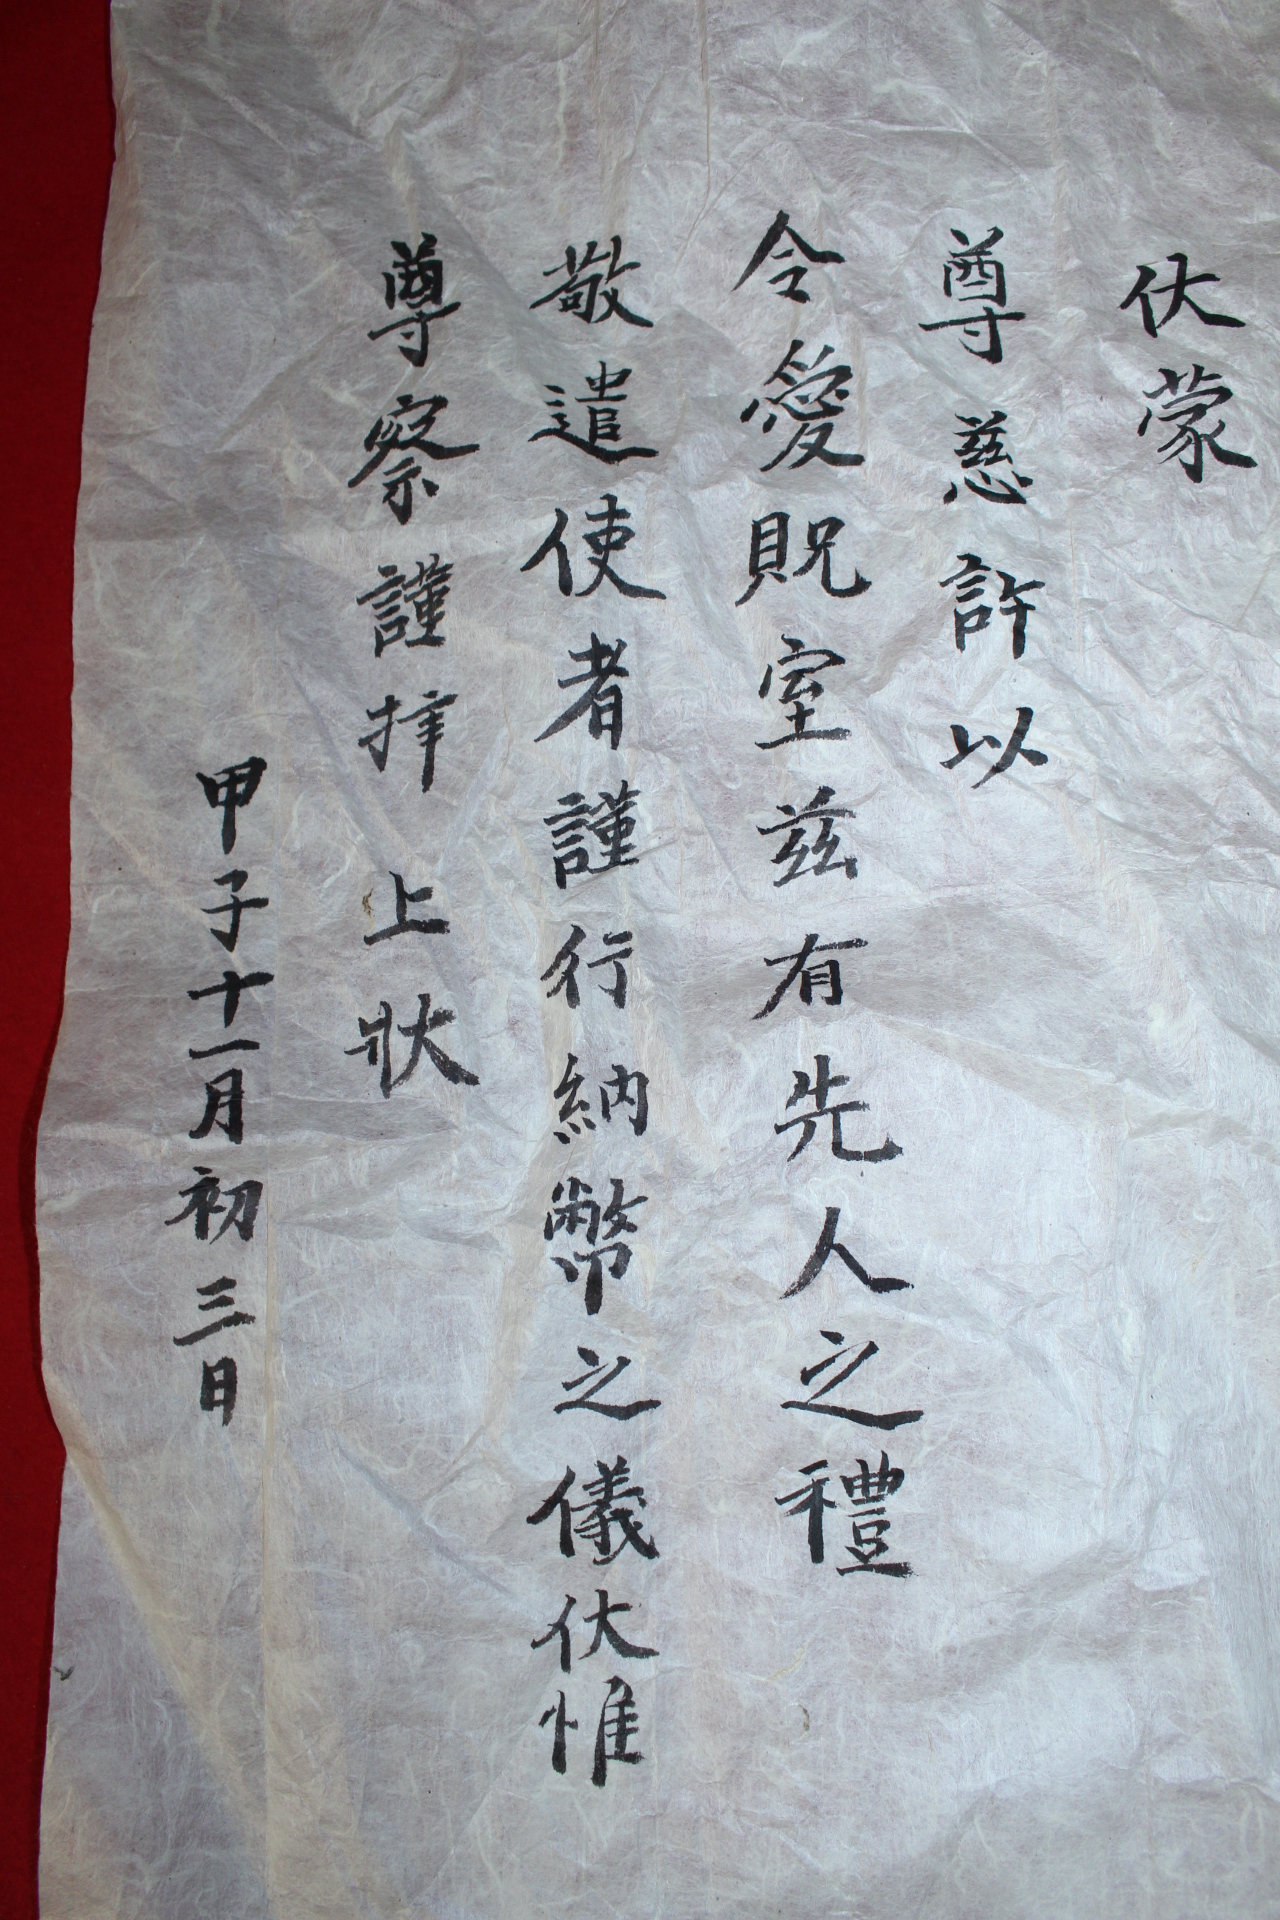 伏蒙
尊慈許以
令愛貺室玆有先人之禮
敬遣使者謹行納幣之儀伏惟
尊察謹拜上狀
甲子十一月初三日